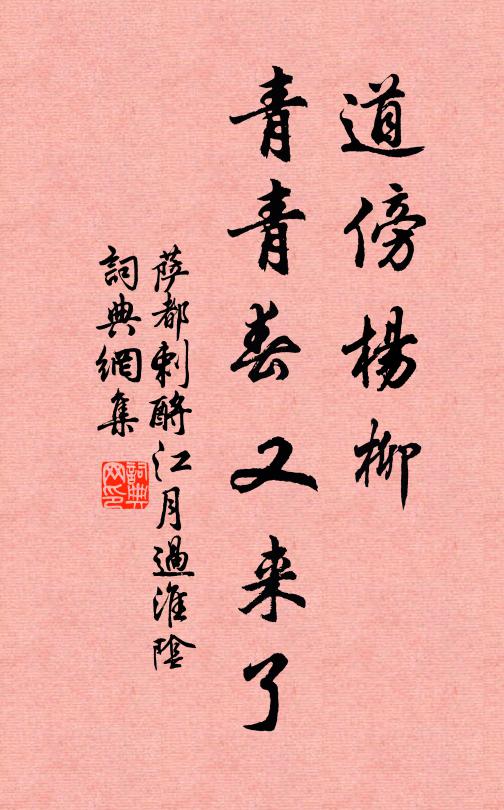 道傍楊柳
青青春又来了
萨都剌酹江月過淮陰
詞典網集
詞典网印